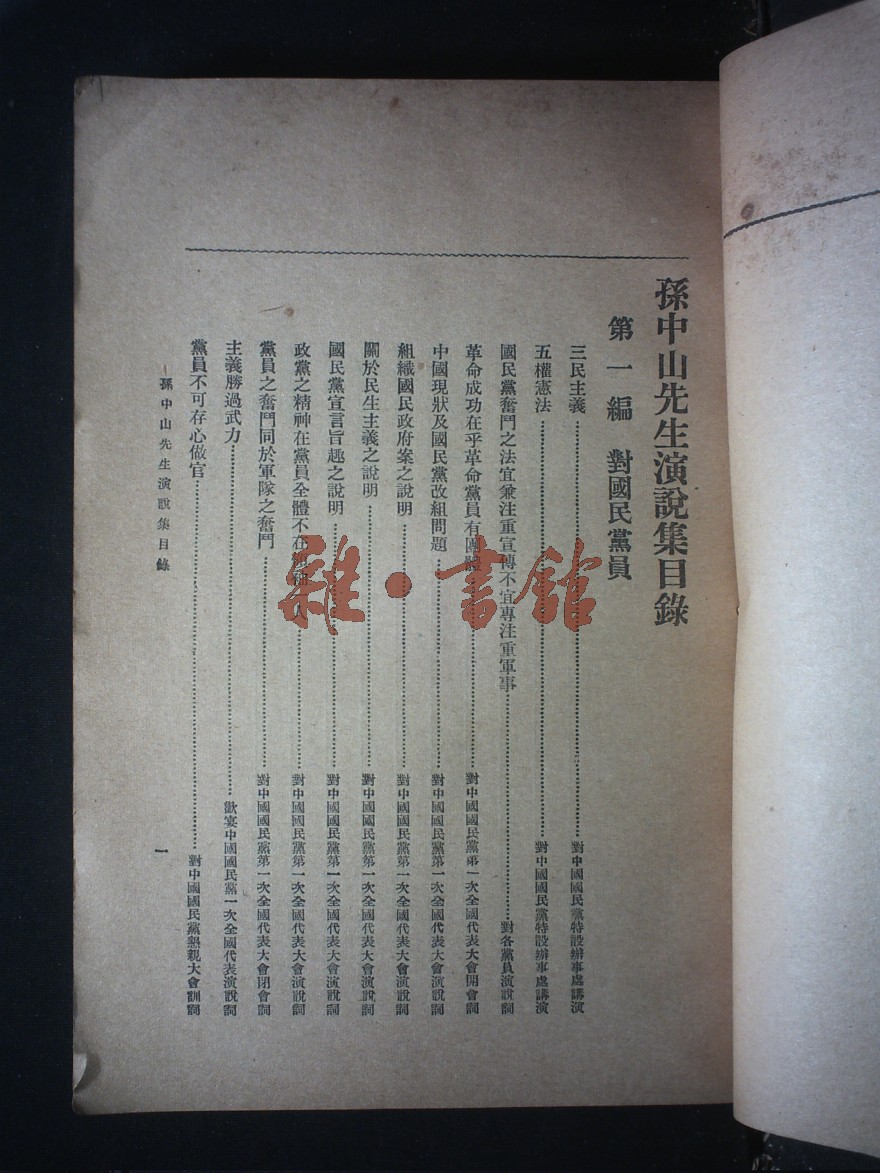 孫中山先生演說集目錄
第一編　對國民黨員
三民主義……對中國國民黨特設辦事處講演
五權憲法……對中國國民黨特設辦事處講演
國民黨奮鬥之法宜兼注重宣傳不宜專注重軍事……對各黨員演說詞
革命成功在乎革命黨員有團體……對中國國民黨第一次全國代表大會開會詞
中國現狀及國民黨改組問題……對中國國民黨第一次全國代表大會演說詞
組織國民政府案之說明……對中國國民黨第一次全國代表大會演說詞
關於民生主義之說明……對中國國民黨第一次全國代表大會演說詞
國民黨宣言旨趣之說明……對中國國民黨第一次全國代表大會演說詞
政黨之精神在黨員全體不在人……對中國國民黨第一次全國代表大會演說詞
黨員之奮鬥同於軍隊之奮鬥……對中國國民黨第一次全國代表大會閉會詞
主義勝過武力……歡宴中國國民黨一次全國代表演說詞
黨員不可存心做官……對中國國民黨懇親大會訓詞
孫中山先生演說集目錄
一
雜·書館